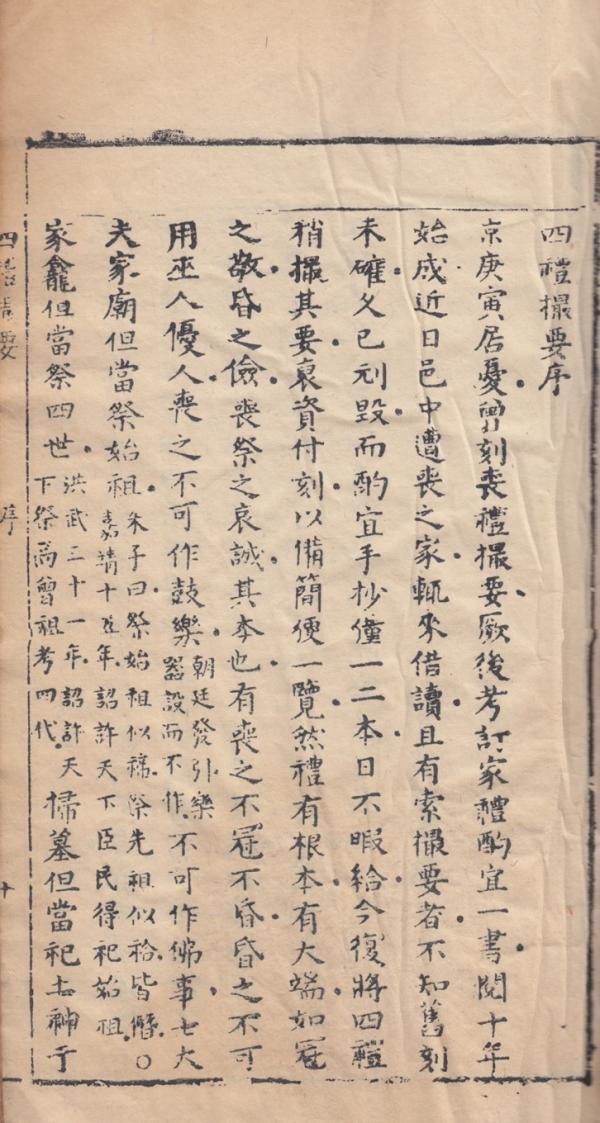 四禮撮要序
京庚寅居憂曽刻喪禮撮要厥後考訂家禮酌宜一書閱十年
始成近日邑中遭喪之家輒來借讀且有索撮要者不知舊刻
未確久已刓毀而酌宜手抄僅一二本日不暇給今復將四禮
稍撮其要裒資付刻以備簡便一覽然禮有根本有大端如冠
之敬昏之儉喪祭之哀誠其本也有喪之不冠不昏昏之不可
用巫人優人喪之不可作鼓樂朝廷發引樂器設而不作不可作佛事士大
夫家廟但當祭始祖朱子曰祭始祖似禘祭先祖似祫皆僭○嘉靖十五年詔許天下臣民得祀始祖
家龕但當祭四世洪武三十一年詔許天下祭高曾祖考四代掃墓但當祀土神于
四禮撮要
序